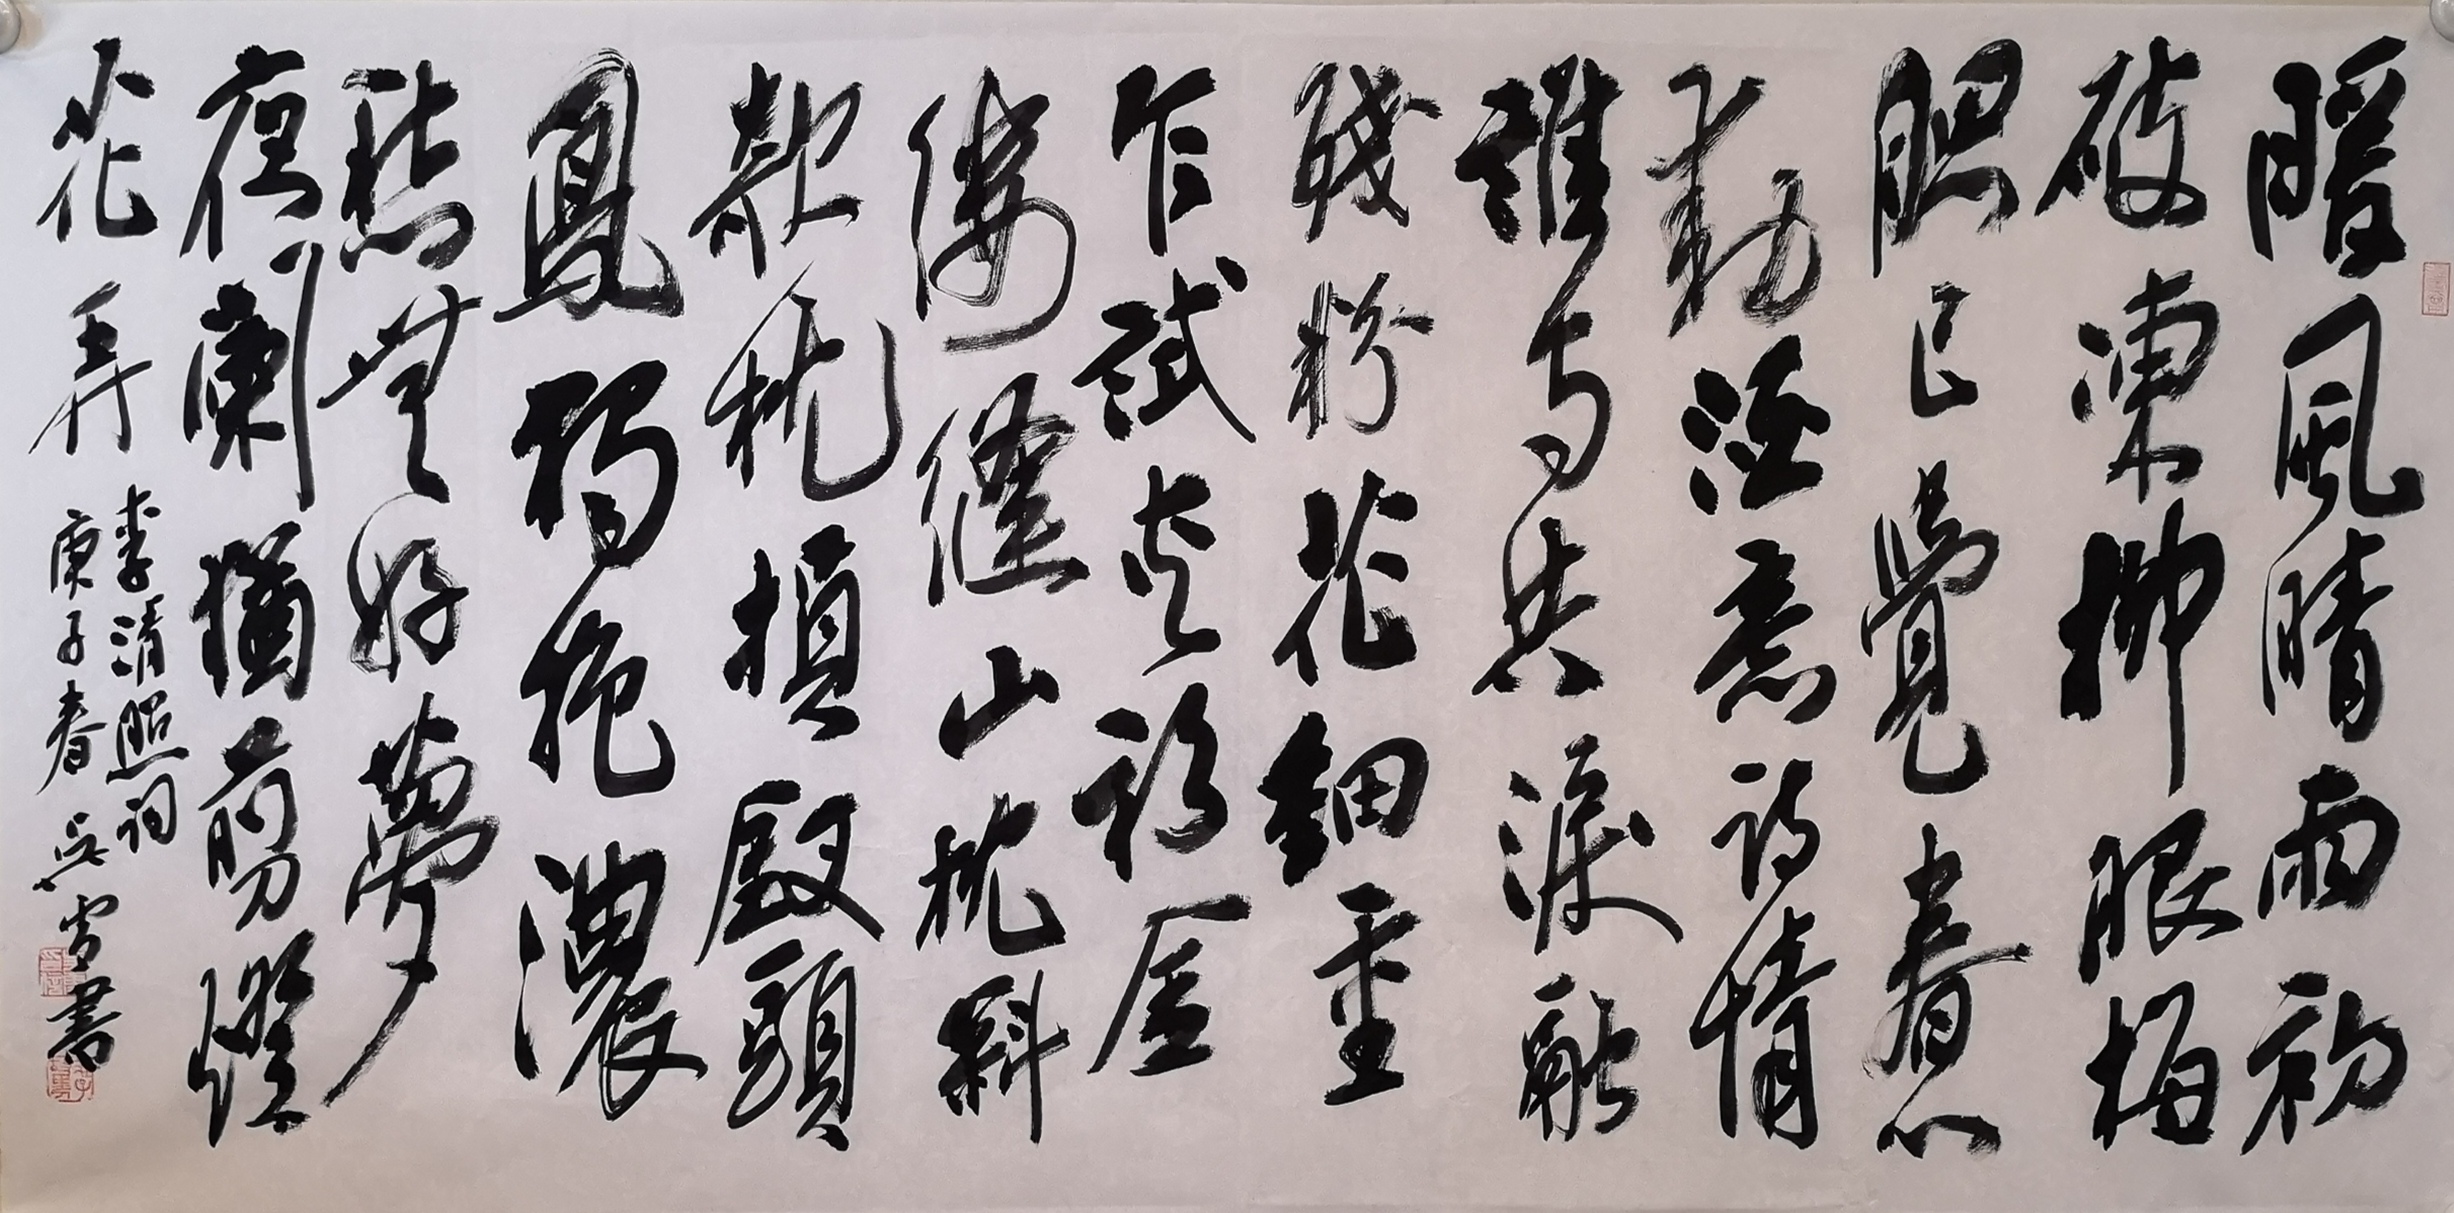 暖風晴雨初
破凍柳眼梅
腮已覺春心
動酒意詩情
誰与共淚融
殘粉花鈿重
乍試夾衫金
縷縫山枕斜
欹枕損釵頭
鳳獨抱濃
愁無好夢
夜闌猶剪燈
花弄
李清照詞
庚子春 書